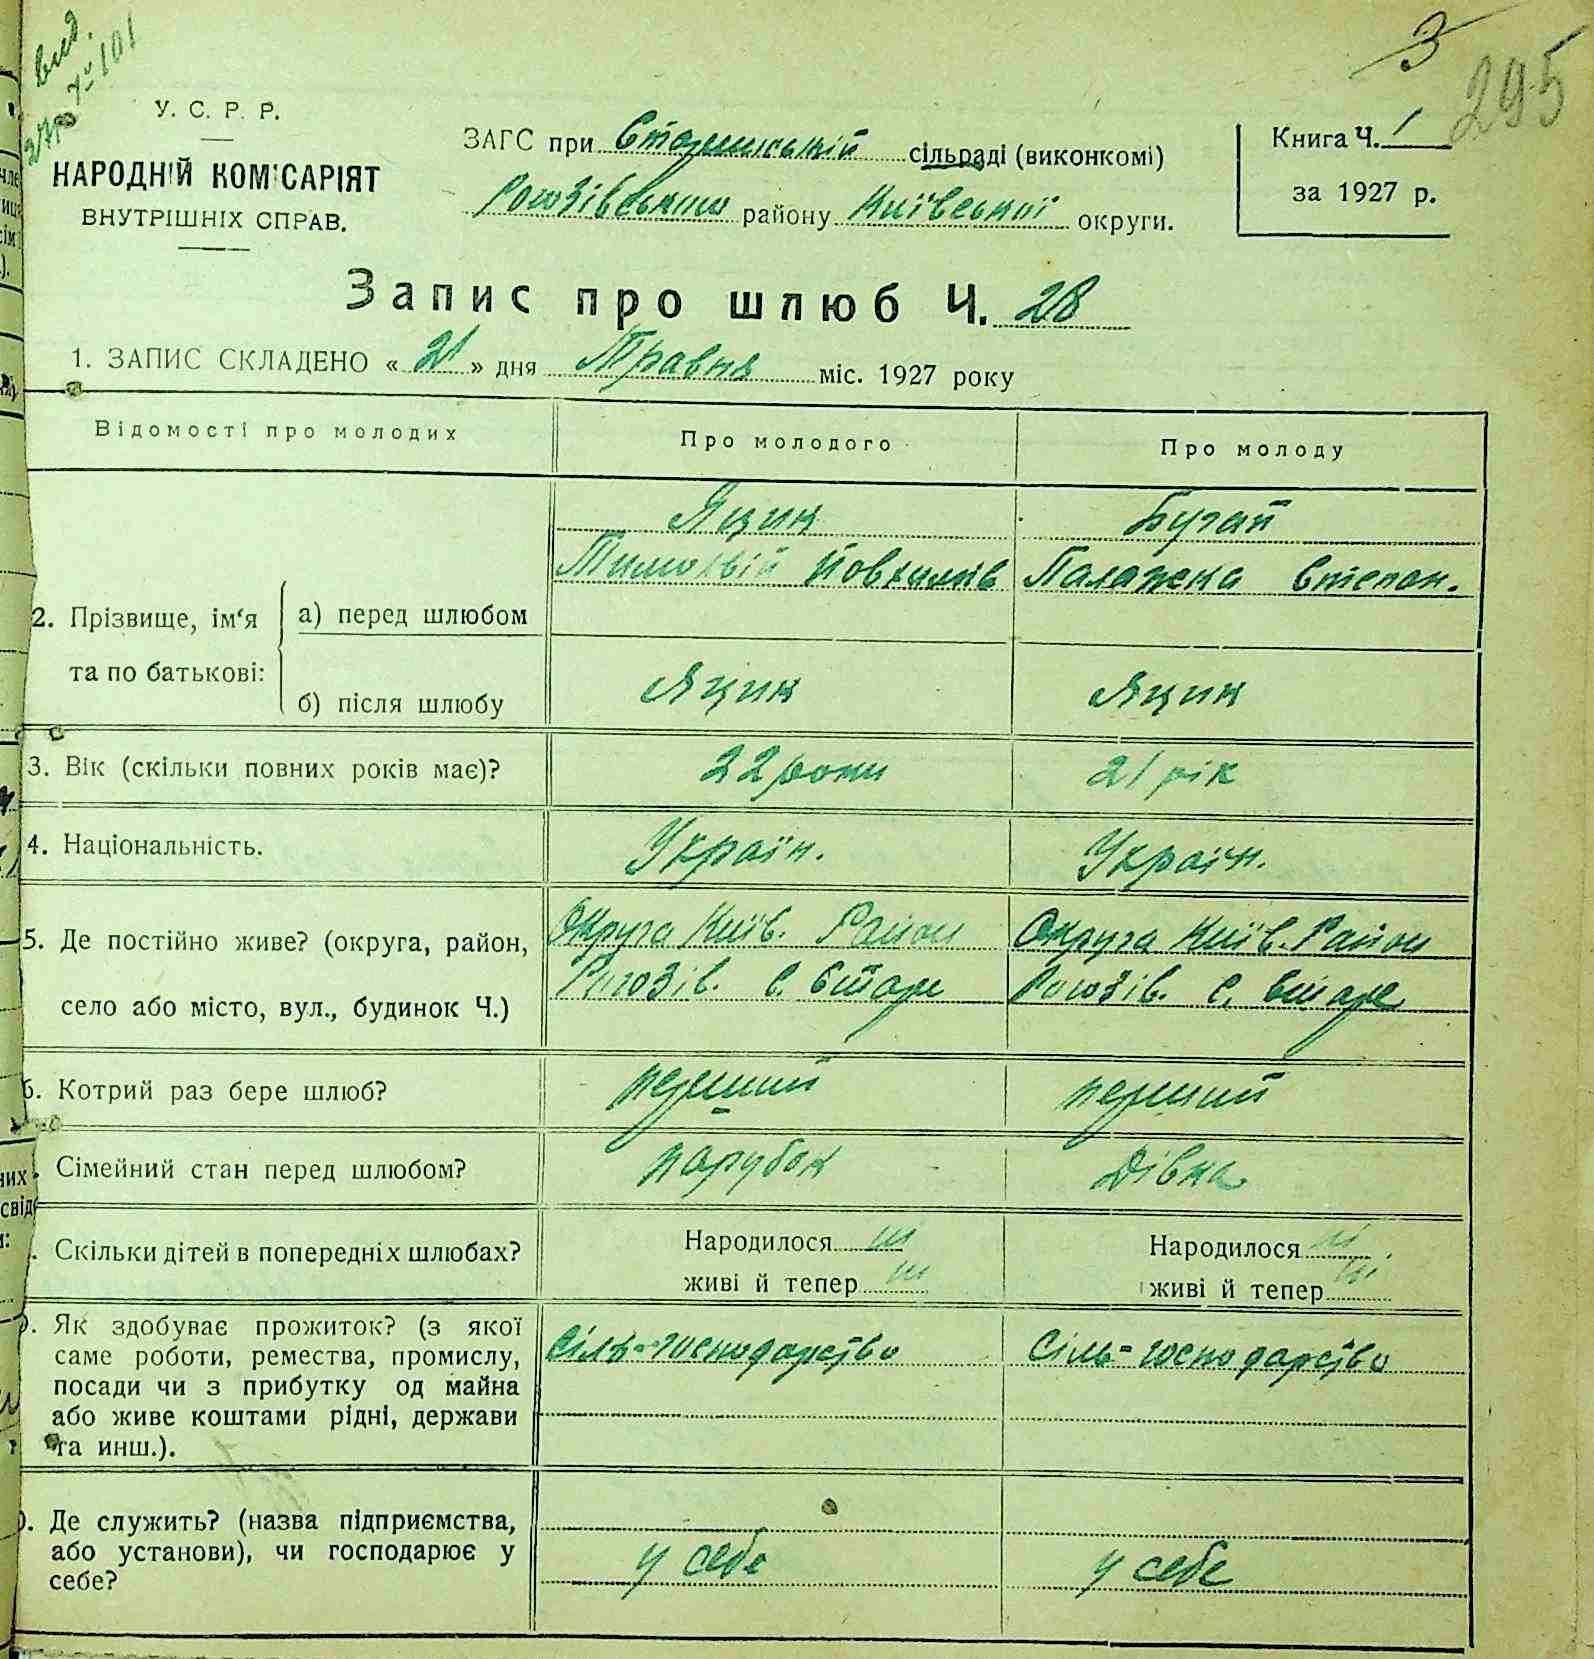 вид.
№ 101
3
295
У. С. Р. Р.
НАРОДНІЙ КОМІСАРІЯТ
ВНУТРІШНІХ СПРАВ.
ЗАГС при Старинській сільраді (виконкомі)
Рогозівського району Київської округи.
Книга Ч. 1
за 1927 р.
Запис про шлюб Ч. 28
1. ЗАПИС СКЛАДЕНО « 21 » дня Травня міс. 1927 року
Відомості про молодих Про молодого Про молоду
Яцик Бугай
Тимофій Йовхимів Палажка Степан.
2. Прізвище, ім‘я та по батькові:
а) перед шлюбом
б) після шлюбу Яцик Яцик
3. Вік (скільки повних років має)? 22 роки 21 рік
4. Національність. Україн. Україн.
5. Де постійно живе? (округа, район, Округа Київ. Район Округа Київ. Район
село або місто, вул., будинок Ч.) Рогозів. с. Старе Рогозів. с. Старе
6. Котрий раз бере шлюб? перший перший
Сімейний стан перед шлюбом? парубок дівка
Скільки дітей в попередніх шлюбах? Народилося Народилося
живі й тепер живі й тепер
Як здобуває прожиток? (з якої Сіль-господарство Сіль-господарство
саме роботи, ремества, промислу,
посади чи з прибутку од майна
або живе коштами рідні, держави
та инш.).
Де служить? (назва підприємства,
або установи), чи господарює у у себе у себе
себе?